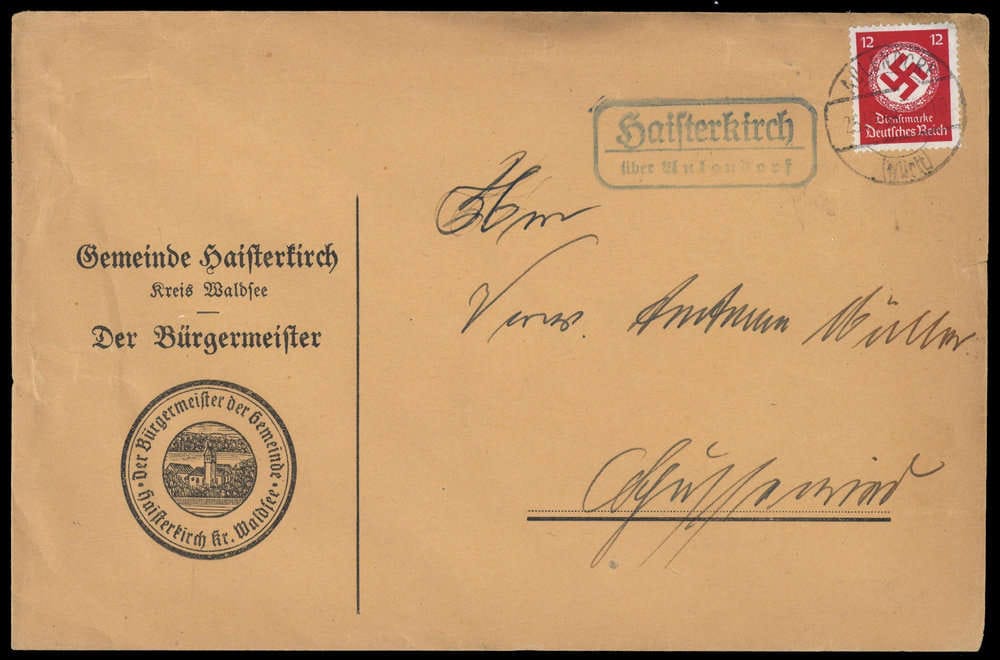 Gemeinde Haisterkirch
Kreis Waldsee
Der Bürgermeister
Der Bürgermeister der Gemeinde
Haisterkirch Kr. Waldsee
Haisterkirch
über Aulendorf
12 12
Dienstmarke
Deutsches Reich
AULENDORF
(Württ)
Herrn
Verw. Amtmann Müller
Schussenried